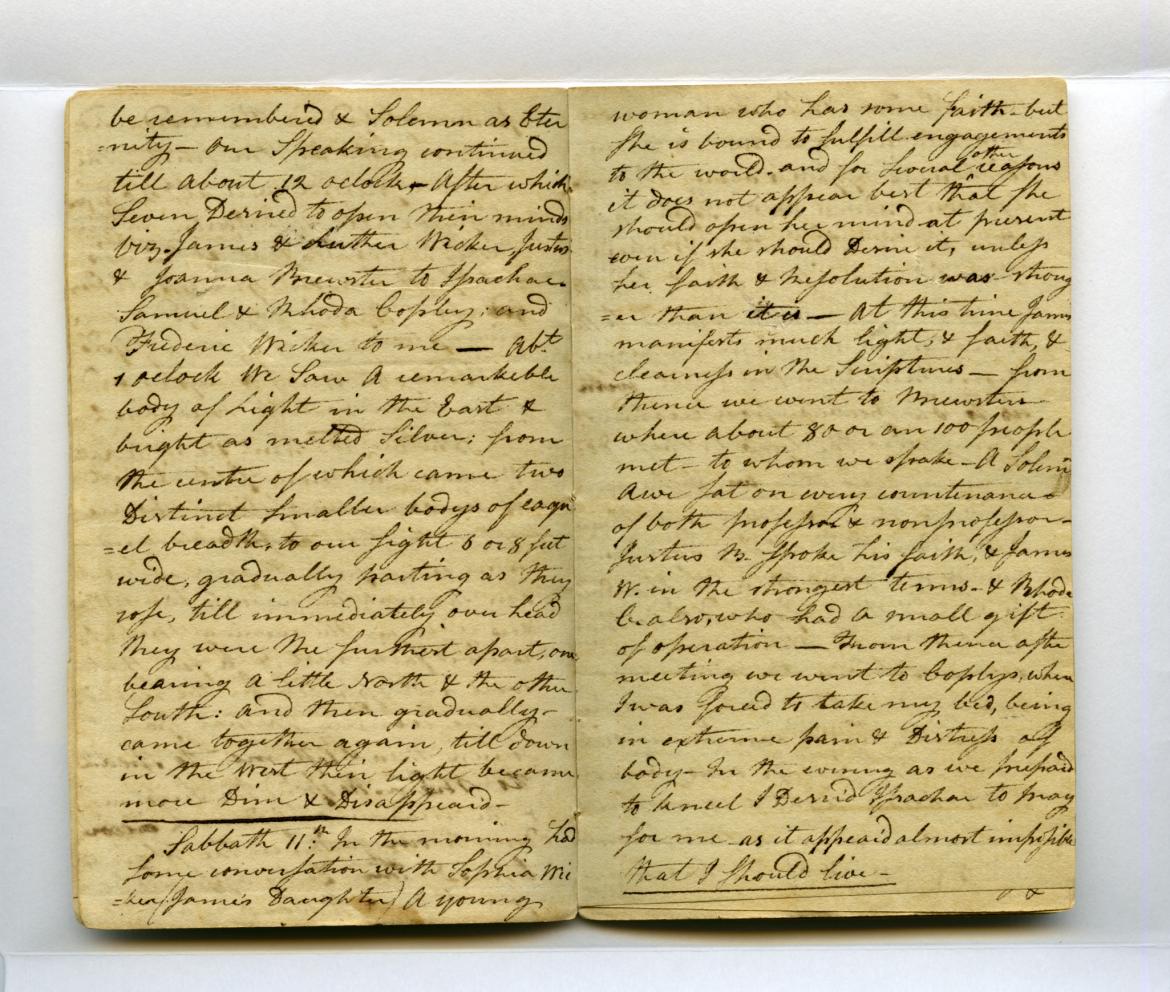 be remembered & Solemn as Eter
=nity— Our Speaking continued
till about 12 oclock,— After which
Seven Desired to open their minds
viz. James & Luther Wicker, Justus
& Joanna Brewster to Issachar.
Samuel & Rhoda Copley; and
Frederic Wicker to me — Abt.
1 oclock We Saw A remarkeble
body of Light in the East &
bright as melted Silver; from
the centre of which came two
Distinct Smaller bodys of eaqu
=el breadth, to our sight 6 or 8 feet
wide, gradually parting as they
rose, till immediately over head
they were the furthest apart, one
bearing A little North & the other
South: and then gradually-
came together again, till down
in the West their light became
more Dim & Disappeard-
Sabbath 11th In the morning had
Some conversation with Sophia Wi
=cker (James Daughter) A young
woman who has some faith-but
She is bound to fulfill engagements
to the world. and for Several other reasons
it does not appear best that She
should open her mind at present
even if she should Desire it, unless
her faith & Resolution was strong
=er than it is — At this time James
manifests much light, & faith, &
clearness in the Scriptures — from
thence we went to Brewsters
where about 80 or an 100 people
met - to whom we spoke - A Solem
Awe sat on every countenance
of both professor & nonprofessor-
Justus B. Spoke his faith, & James
W. in the strongest terms- & Rhoda
C. also, who had a small gift
of operation — From thence after
meeting we went to Copleys, where
I was forced to take my bed, being
in extreme pain & Distress of
body- In the evening as we prepaird
to kneel I Desird Issachar to pray
for me as it appeard almost impossible
that I Should live -